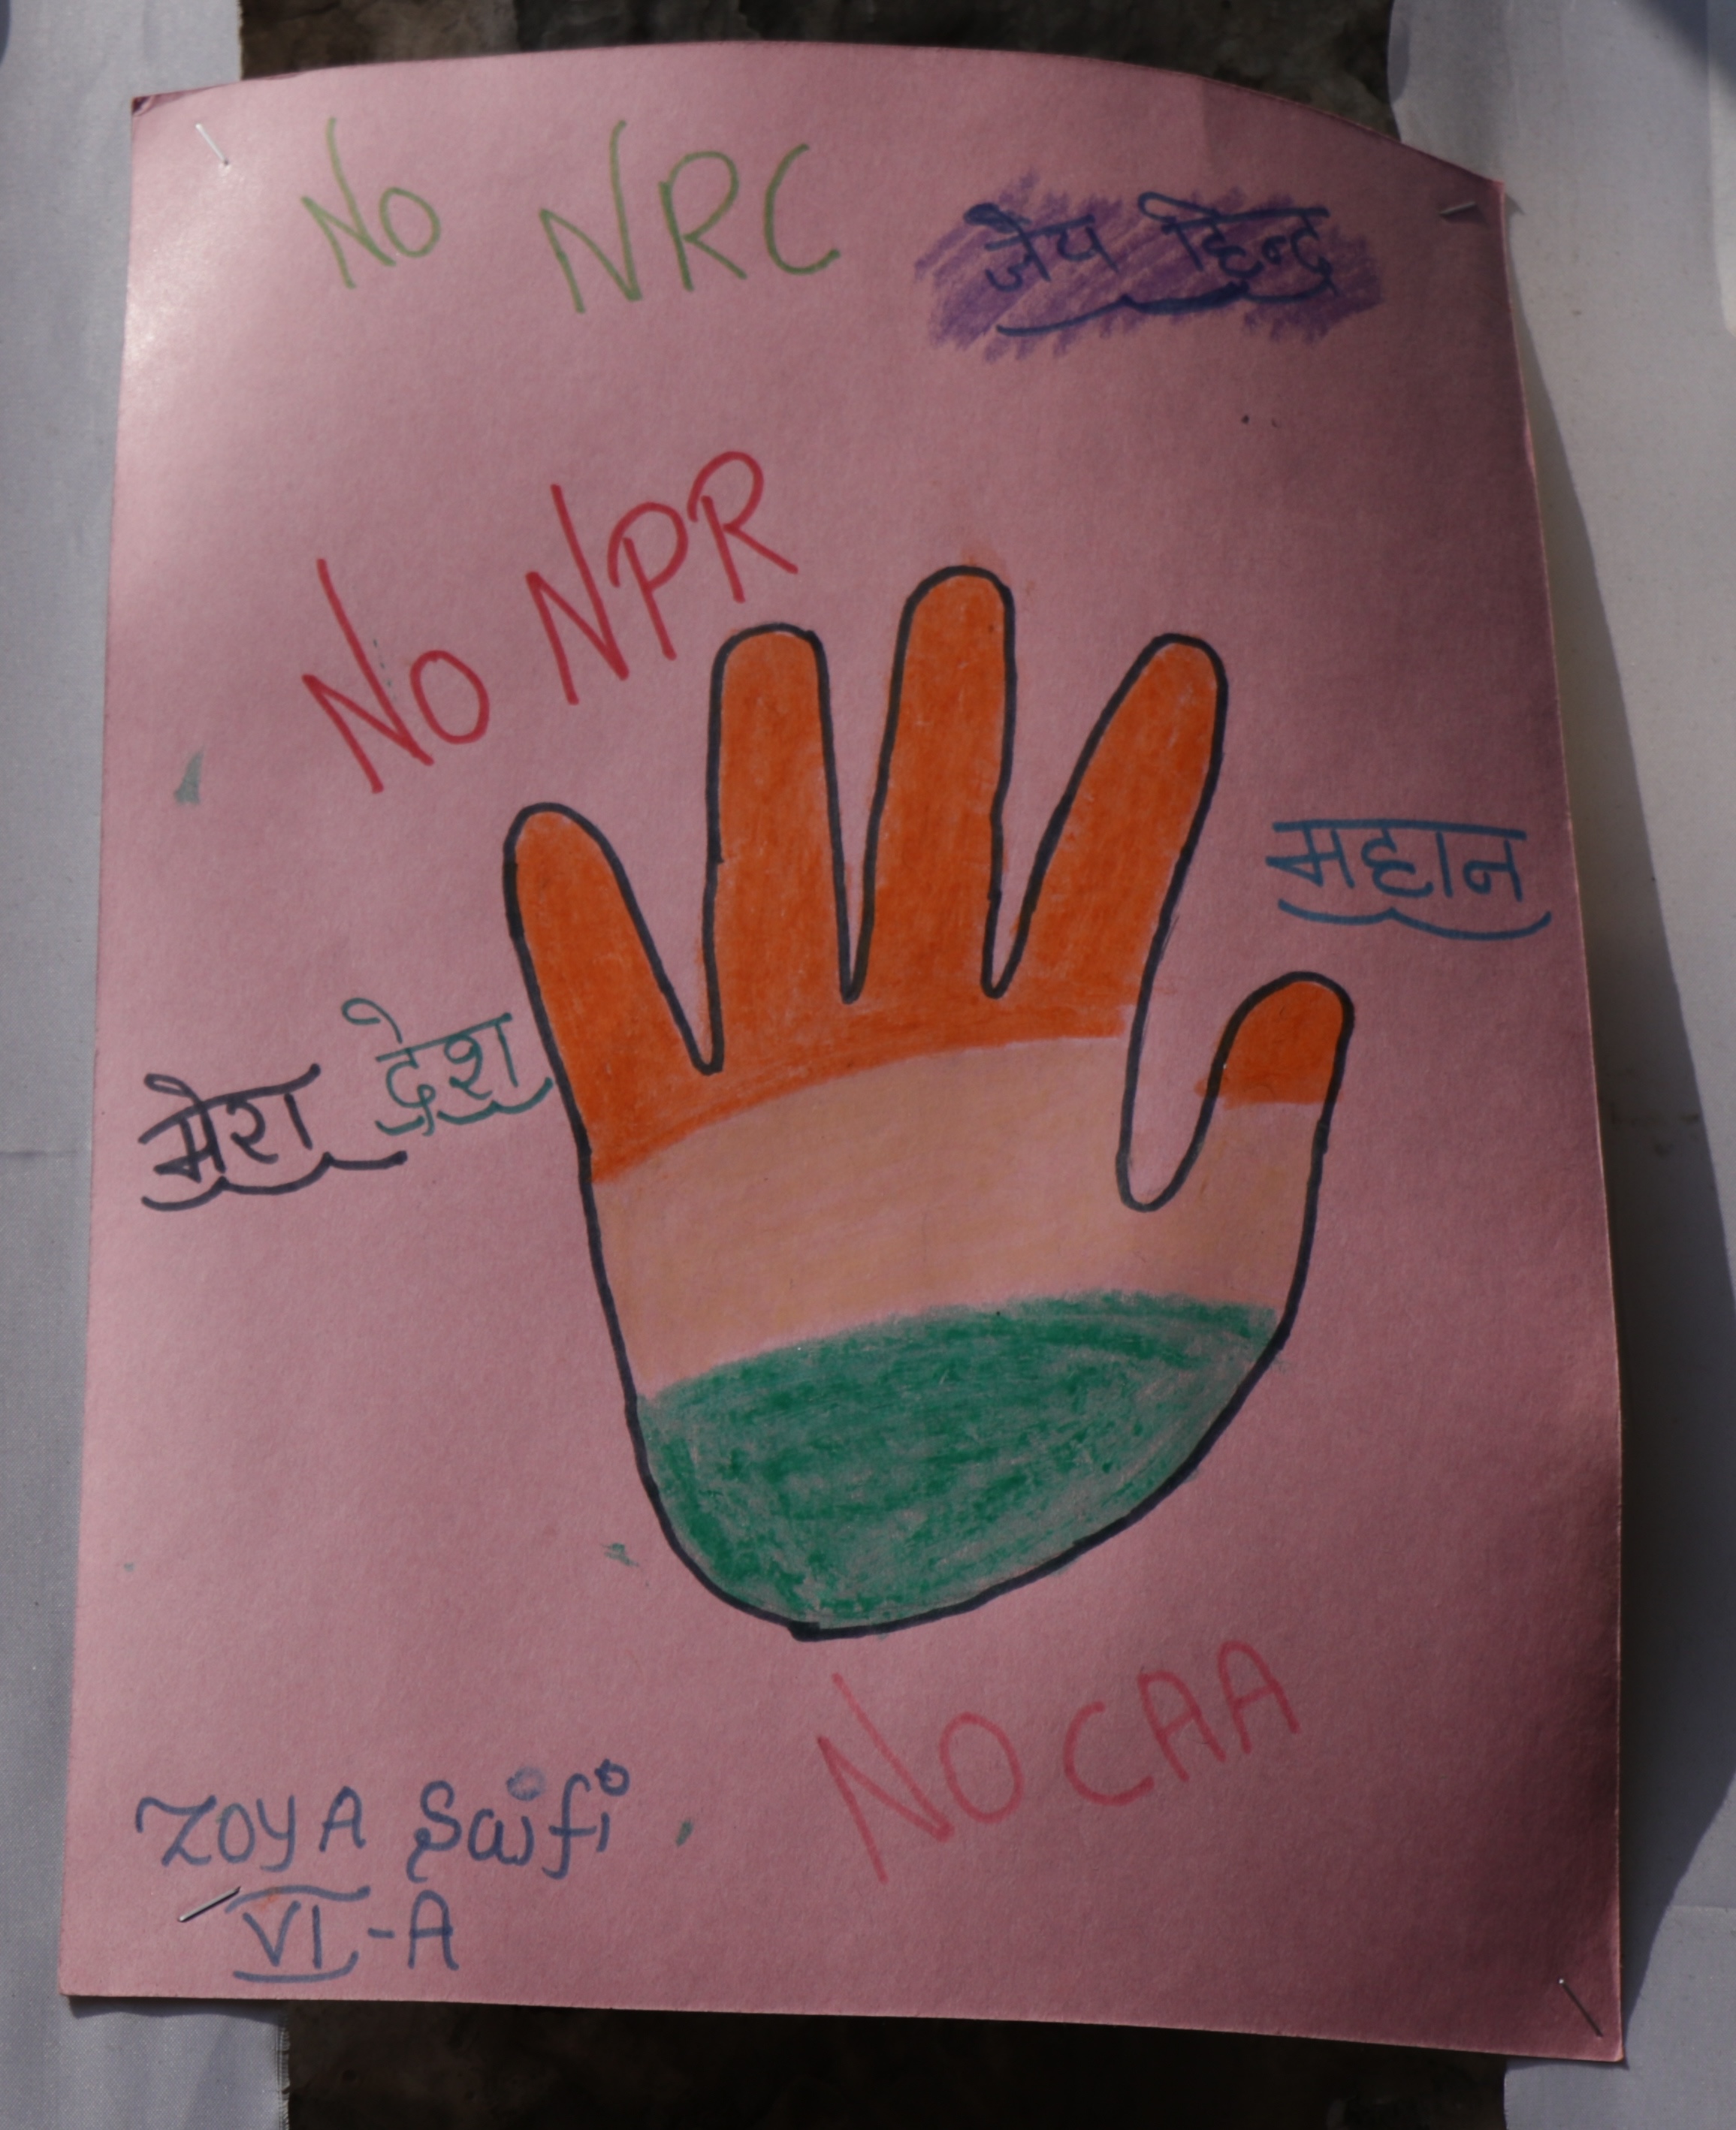 No NRC
जैय हिन्द
No NPR
महान
मेरा देश
NO CAA
ZOYA Saifi
VI-A